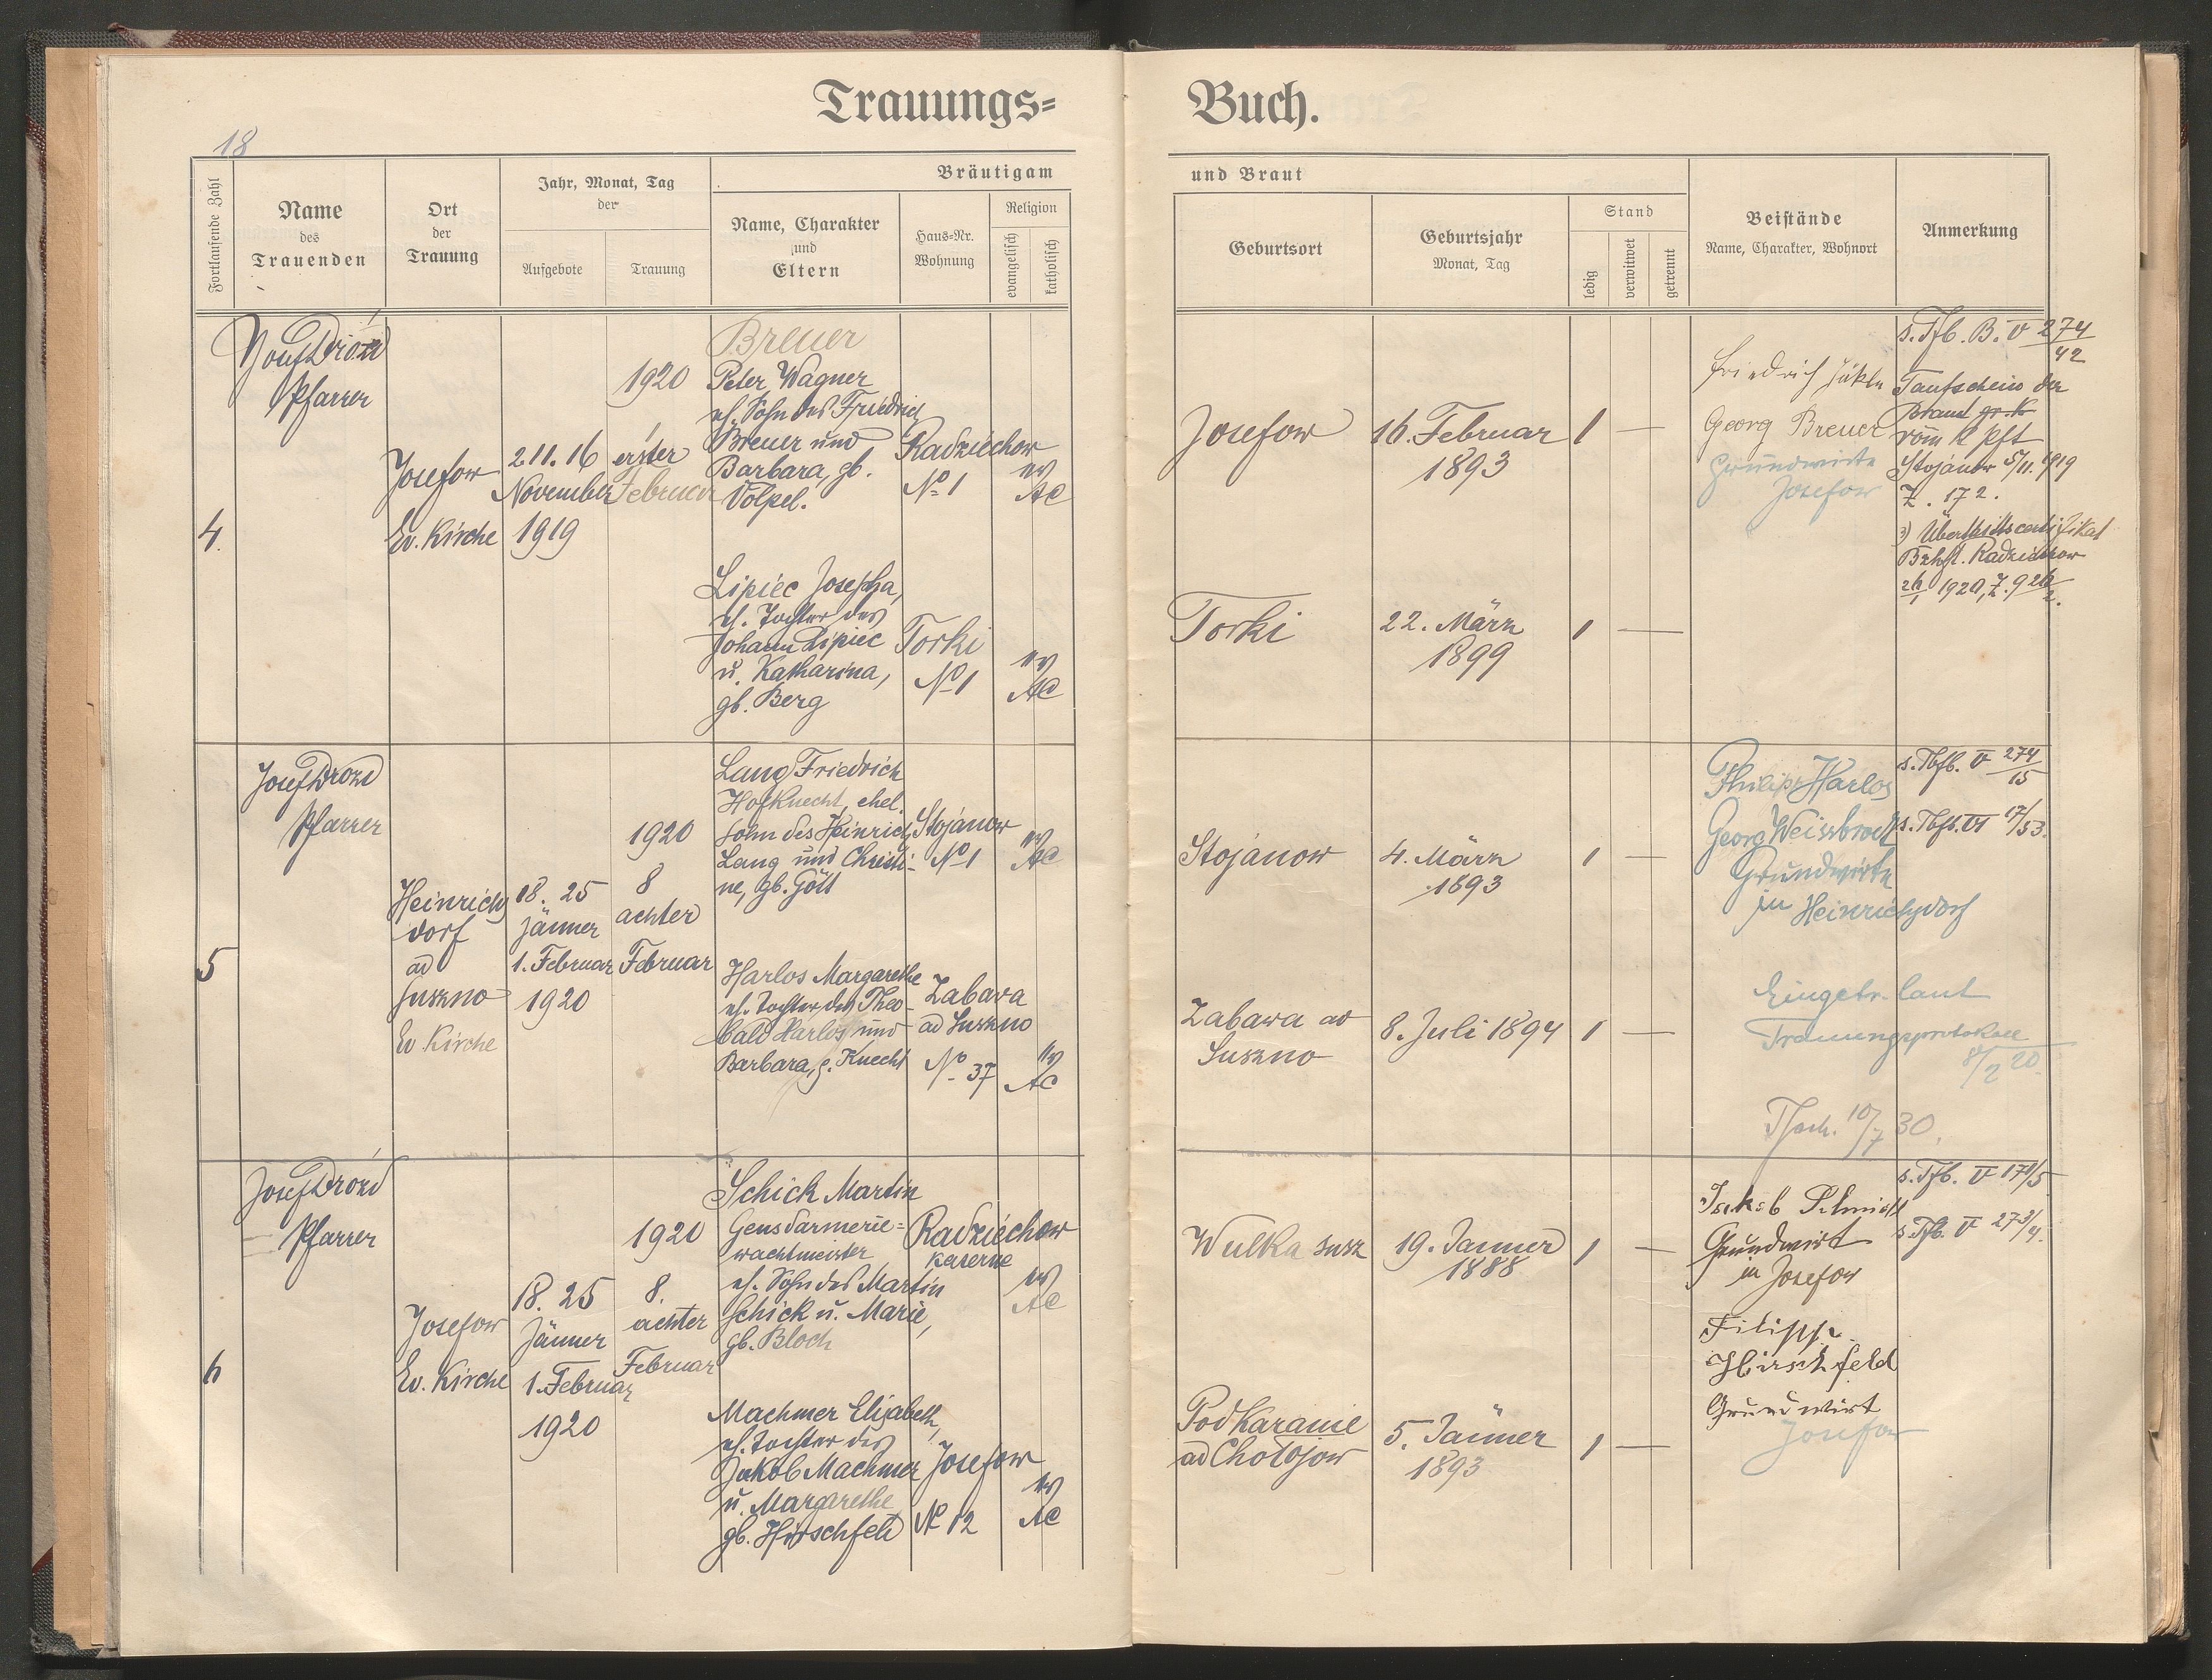 Trauungs=
Buch.
18
Fortlaufende Zahl
Name
des
Trauenden
Ort
der
Trauung
Jahr, Monat, Tag
der
Aufgebote
Trauung
Bräutigam
Name, Charakter
und
Eltern
Haus=Nr.
Wohnung
Religion
evangelisch
katholisch
und Braut
Geburtsort
Geburtsjahr
Monat, Tag
Stand
ledig
verwitwet
getrennt
Beistände
Name, Charakter, Wohnort
Anmerkung
4.
Josef Drozd
Pfarrer
Josefow
Ev. Kirche
2 11. 16
November
1919
1920
erster
Februar
Breuer
Peter Wagner
eh. Sohn des Friedrich
Breuer und
Barbara, gb.
Volpel.
Radziechow
No 1
ev
AC
Lipiec Josefha,
eh. Tochter des
Johann Lipiec
u. Katharina,
gb. Berg
Torki
No 1
ev
AC
Josefow
16. Februar
1893
1 —
Torki
22. März
1899
1 —
Friedrich Jäkle
Georg Breuer
Grundwirte
Josefow
s. Tfb. B. V 274
42
Taufschein der
Braut gr. k
röm k Pft
Stojanow 5/11. 1919
Z. 172.
Übertrittscertifikat
Bzhft. Radziechow
1920, Z. 926
2.
5
Josef Drozd
Pfarrer
Heinrichs
dorf
ad
Suszno
Ev. Kirche
18. 25
Jänner
1. Februar
1920
1920
8
achter
Februar
Lang Friedrich
Hofknecht, ehel.
Sohn des Heinrich
Lang und Christi-
ne, gb. Gött
Stojanow
No 1
ev
AC
Harlos Margarethe
eh. Tochter des Theo-
bald Harlos und
Barbara, g. Knecht
Zabava
ad Suszno
No 37
ev
AC
Stojanow
4. März
1893
1 —
Zabawa ad
Suszno
8. Juli 1894
1 —
Philipp Harlos
Georg Weissbrodt
Grundwirte
in Heinrichsdorf
Eingetr. laut
Trauungsprotokoll
8/2 20
10/7 30.
s. Tbfb. V 274
15
s. Tbfb. VI 17/53.
6
Josef Drozd
Pfarrer
Josefow
Ev. Kirche
18. 25
Jänner
1. Februar
1920
1920
8.
achter
Februar
Schick Martin
Gensdarmerie=
wachtmeister
eh. Sohn des Martin
Schick u. Marie,
gb. Bloch
Radziechow
Kaserne
ev
AC
Machmer Elisabeth,
eh. Tochter des
Jakob Machmer
u. Margarethe
gb. Hirschfeld
Josefow
No 12
ev
AC
Wulka susz
19. Jänner
1888
1 —
Podkaranie
ad Cholojow
5. Jänner
1893
1 —
Jakob Schmidt
Grundwirt
in Josefow
Filipp
Hirschfeld
Grundwirt
Josefow
s. Tfb. V 179/5
s. Tfb. V 273/4.